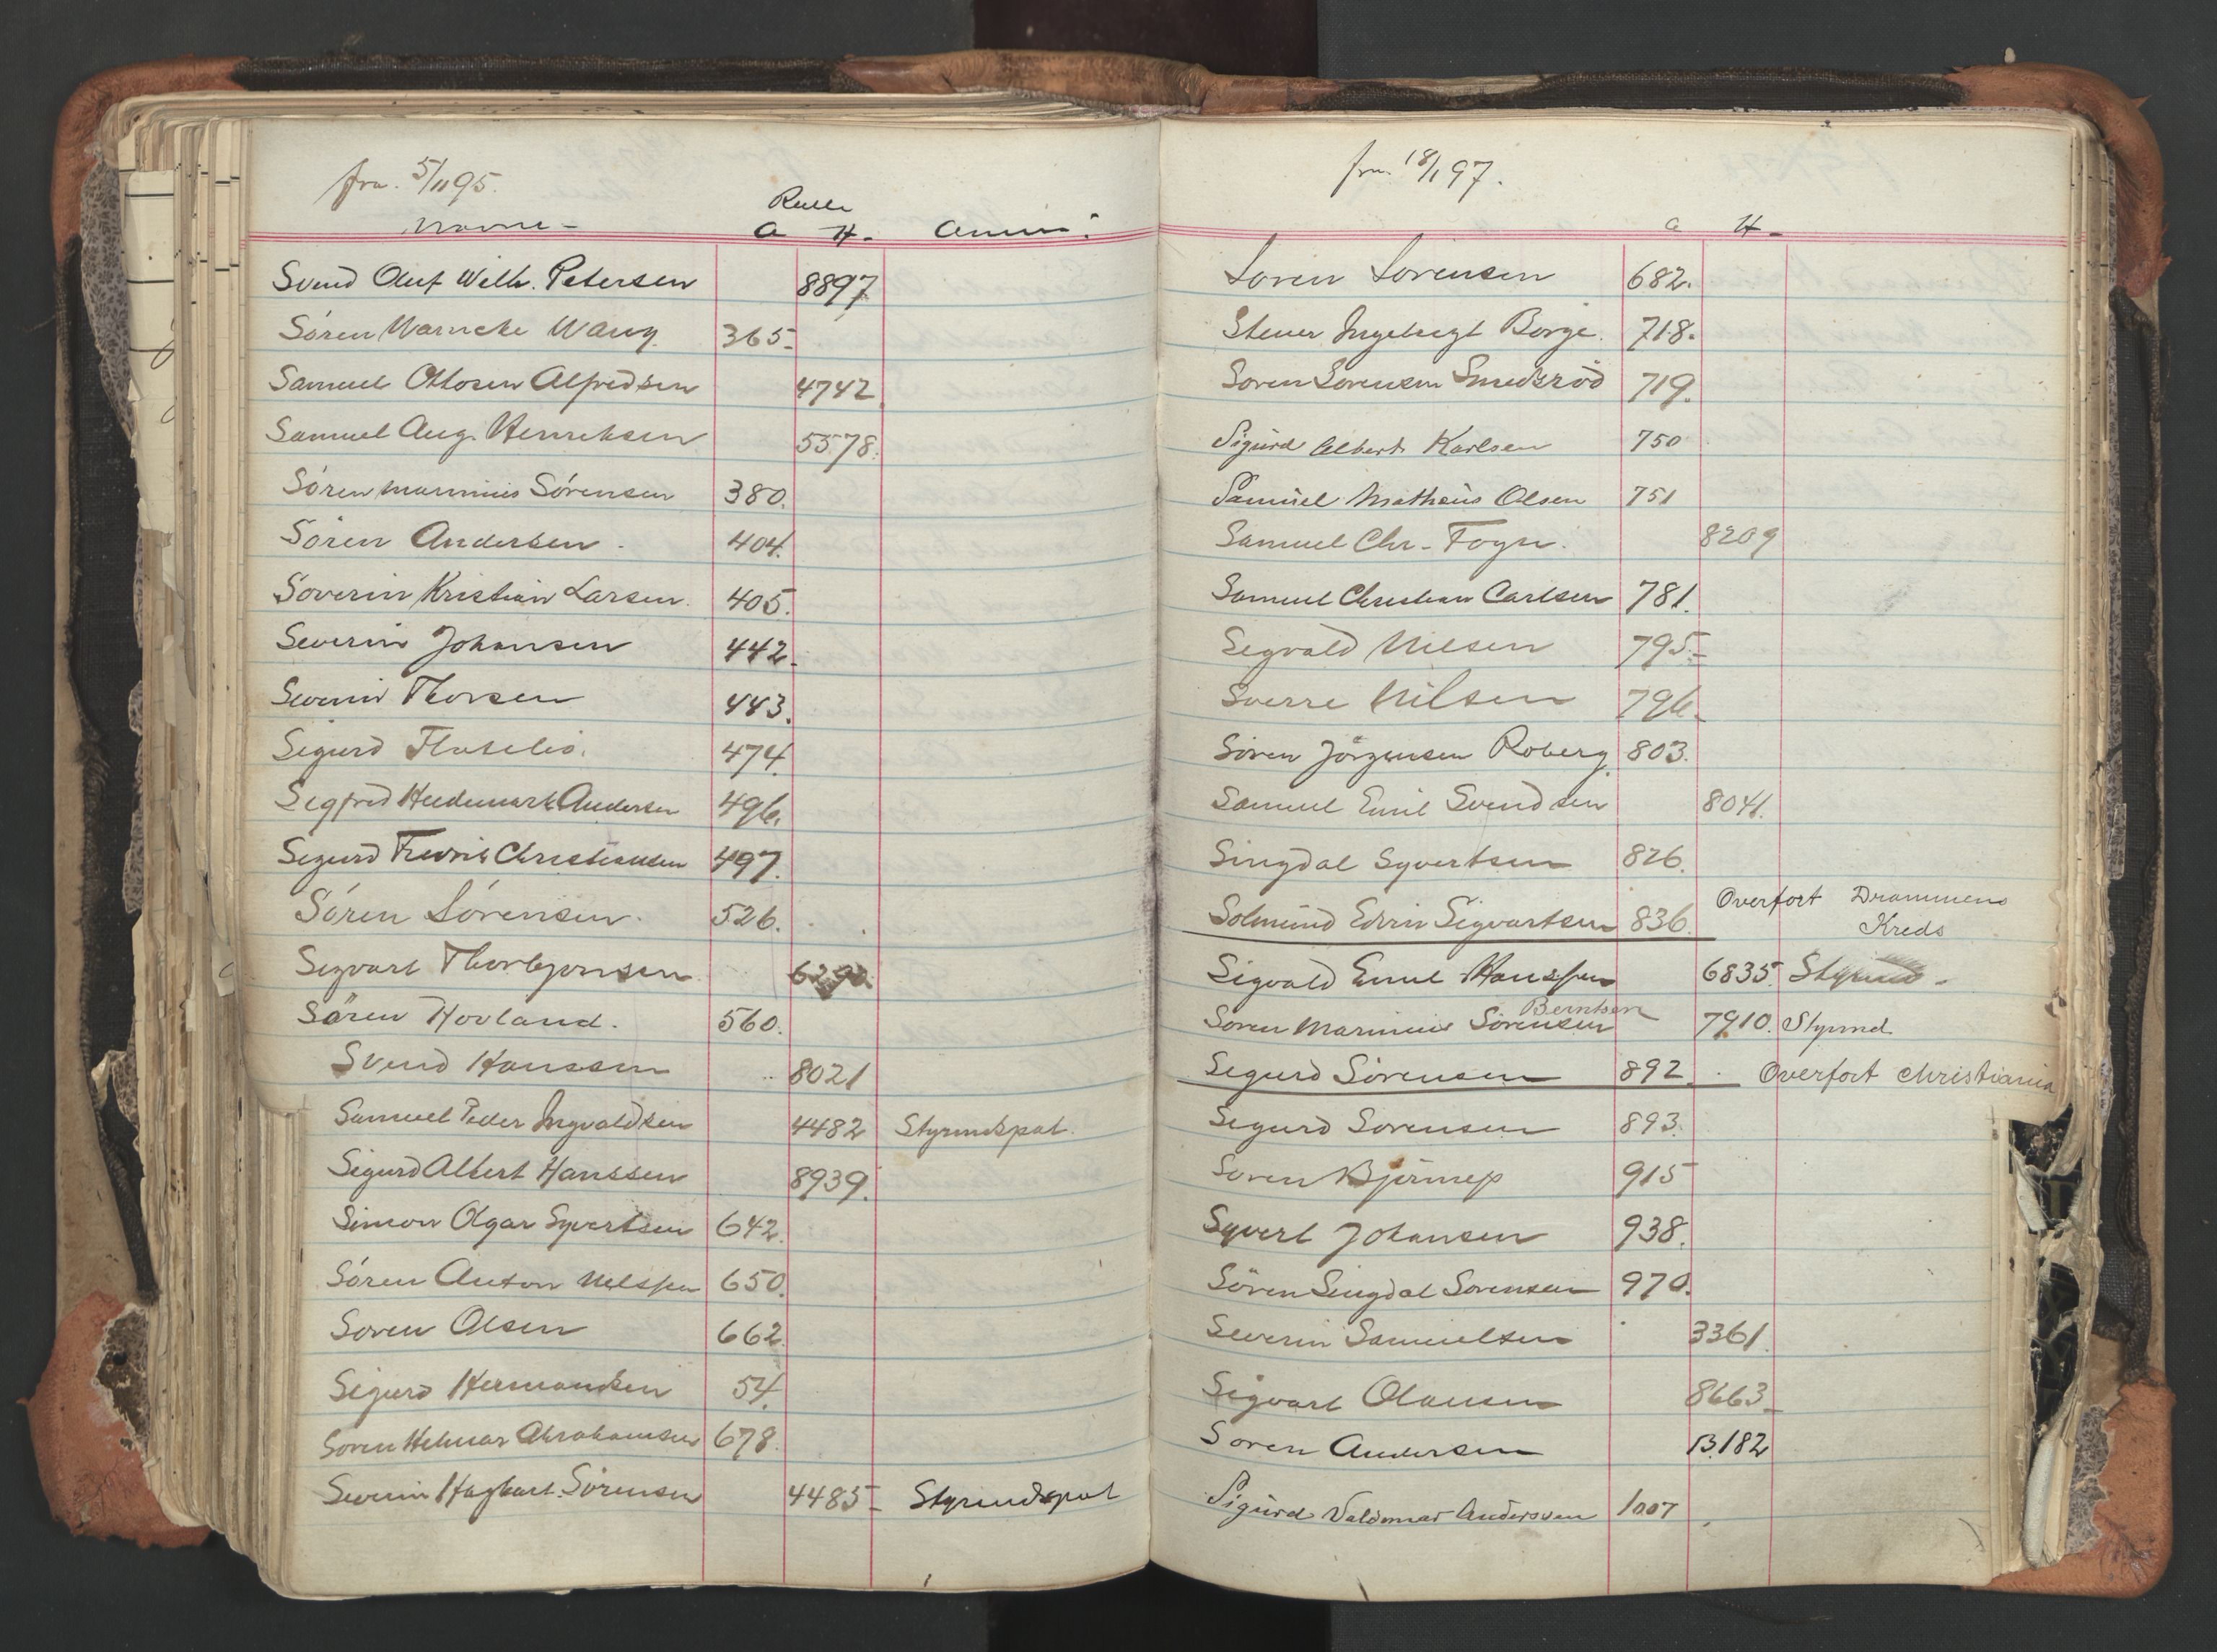 fra. 5/11 95.
Rulle
Navne - A H. Anm:
Svend Oluf Wilh. Petersen 8897
Sören Warncke Wang 365-
Samuel Ottosen Alfredsen 4742
Samuel Aug. Henriksen 5578.
Sören Marinius Sörensen 380.
Sören Andersen. 404.
Soverin Kristian Larsen. 405.
Severin Johansen 442.
Severin Thorsen 443.
Sigurd 474.
Sigfred Hedemark Andersen 496.
Sigurd Fredrik Christiansen 497.
Sören Sörensen. 526.
Sigvart Thorbjornsen
Sören Hovland. 560.
Svend Hanssen 8021
Samuel Peder Ingvaldsen 4482 Styrmdspat.
Sigurd Albert Hanssen 8939.
Simon Olgar Syvertsen 642.
Sören Anton Nelssen 650.
Soren Olsen 662.
Sigurd Hermansen 54.
Soren Helmar Abrahamsen 678.
Severin Hagbart Sörensen 4485- Styrmdspat
fra. 18/1 97.
A H-
Soren Sorensen 682.
Stener Ingebregt Borge. 718.
Soren Sorensen Smedsröd 719.
Sigurd Albert Karlsen 750
Samuel Mathæus Olsen 751
Samuel Chr. Fogn. 8209
Samuel Christian Carlsen 781.
Sigvald Nilsen 795-
Sverre Nilsen 796-
Sören Jörgensen Roberg 803.
Samuel Emil Svendsen 8041.
Singdal Syvertsen 826.
Solmund Edvin Sigvartsen 836. Overfört Drammens
Kreds
Sigvald Emil Hanssen 6835. Styrmd-
Berntsen
Soren Marinius Sörensen 7910. Styrmd.
Sigurd Sörensen 892. Overfort Christiania
Sigurd Sorensen 893.
Soren 915
Syvert Johansen 938.
Sören Singdal Sorensen 970.
Severin Samuelsen 3361.
Sigvart Olausen 8663-
Soren Andersen B.182
Sigurd Valdemar Andersen 1007